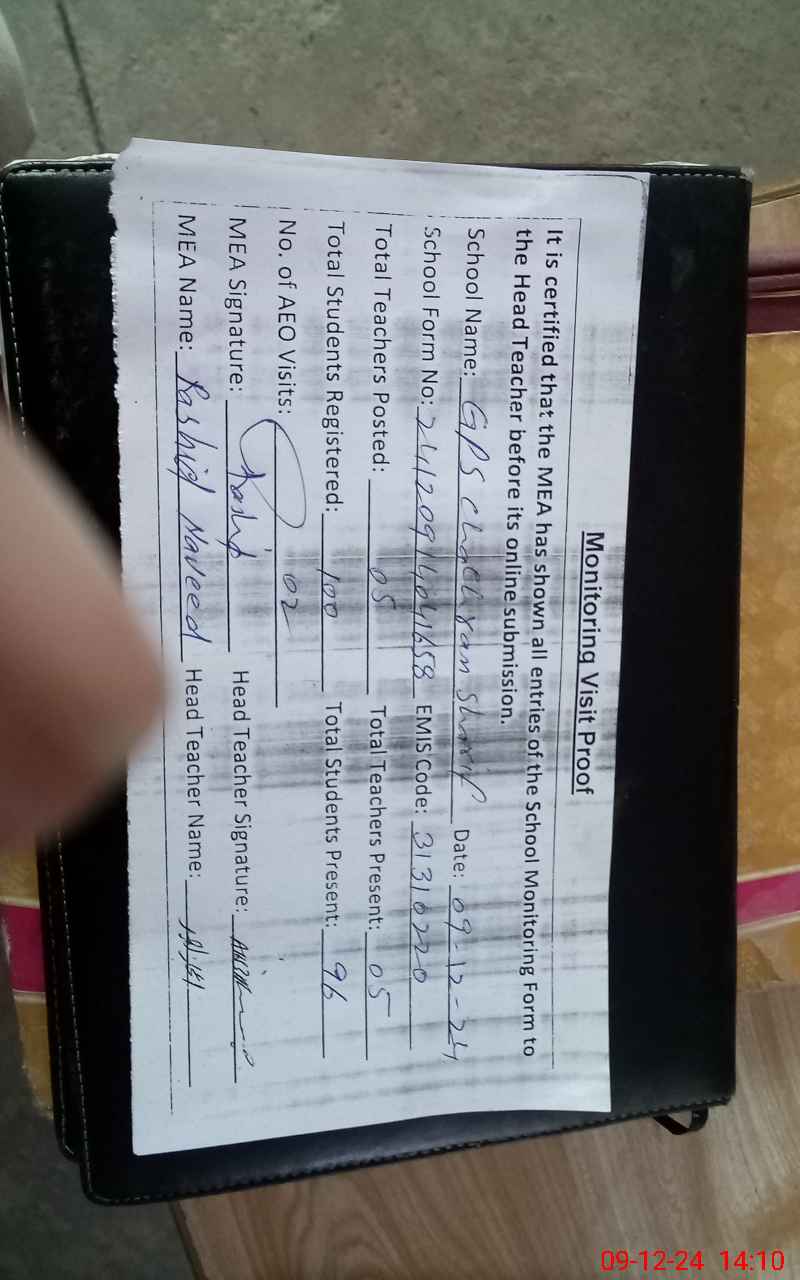 Monitoring Visit Proof
It is certified that the MEA has shown all entries of the School Monitoring Form to
the Head Teacher before its online submission.
School Name: GPS Sharif Date: 09-12-24
School Form No: EMIS Code: 31310220
Total Teachers Posted: 05 Total Teachers Present: 05
Total Students Registered: 100 Total Students Present: 96
No. of AEO Visits: 02
MEA Signature: Rashid Head Teacher Signature:
MEA Name: Rashid Naveed Head Teacher Name:
09-12-24 14:10